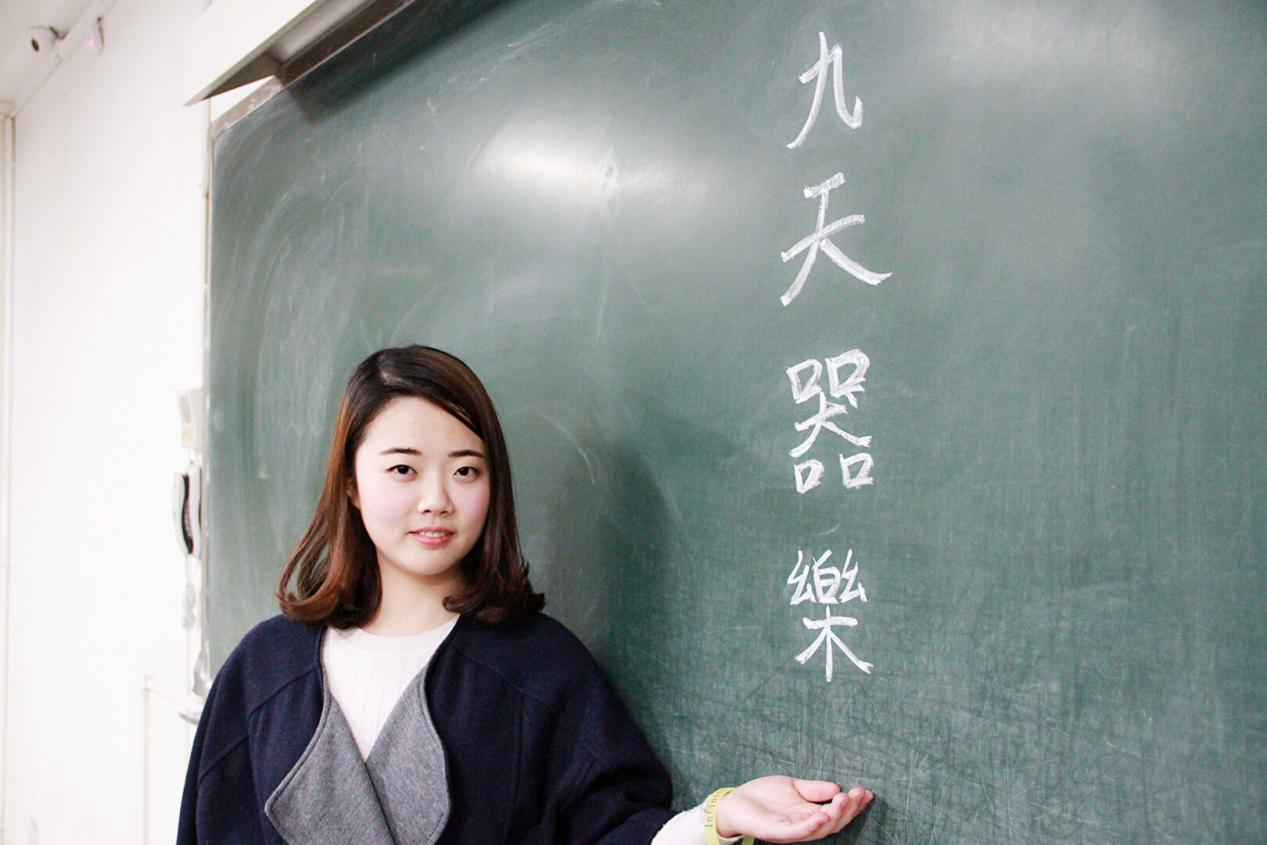 九天器樂